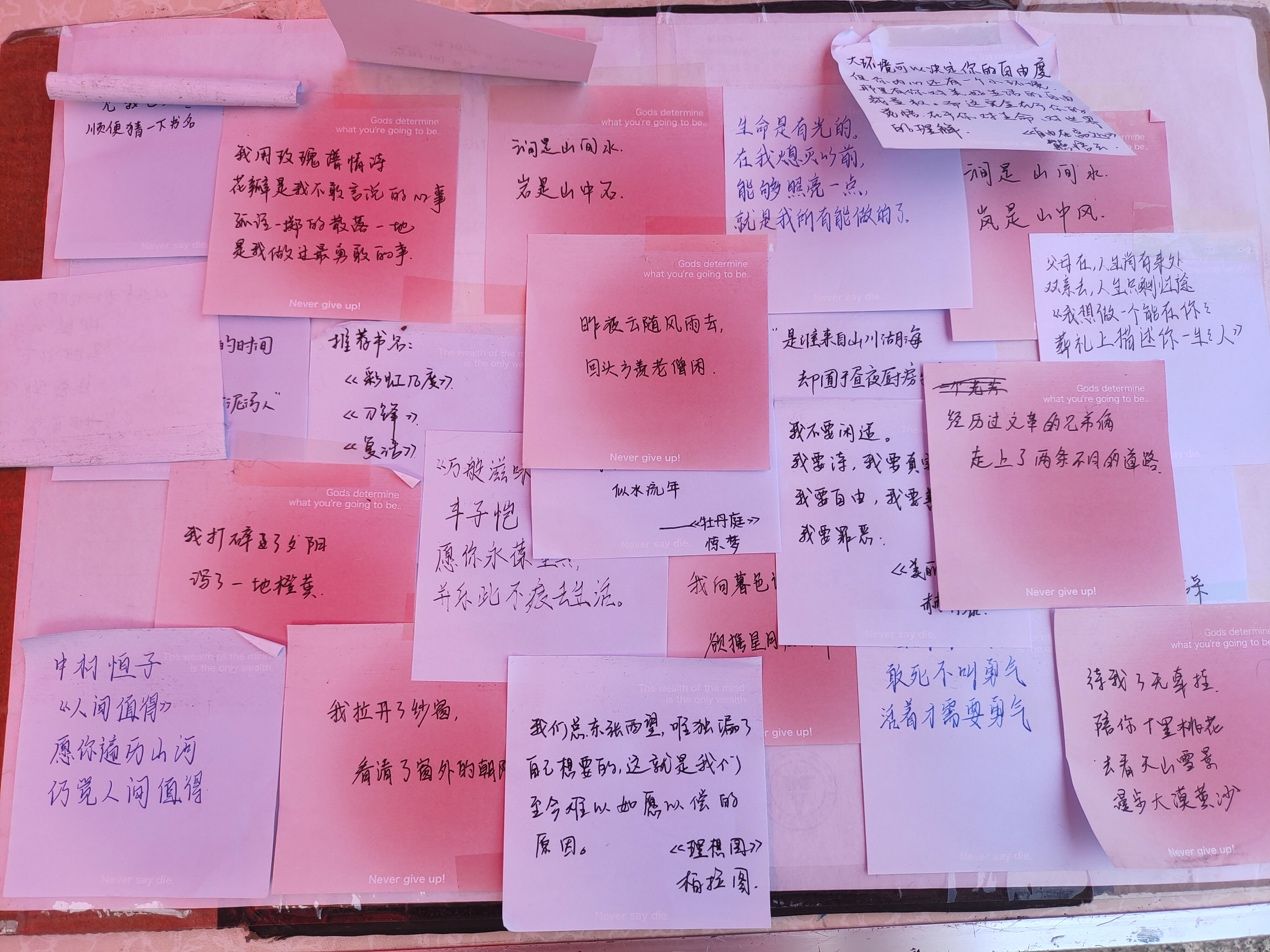 顺便猜一下书名
Never say die.
Gods determine
what you're going to be..
我用玫瑰谱情诗
花瓣是我不敢言说的心事
孤注一掷的散落一地
是我做过最勇敢的事.
Never give up!
Gods determine
what you're going to be..
涧是山间水.
岩是山中石.
生命是有光的。
在我熄灭以前,
能够照亮一点,
就是我所有能做的了.
Never say die.
大环境可以决定你的自由度
的理解.
涧是山间水.
岚是山中风.
父母在,人生尚有来处
双亲去,人生只剩归途
《我想做一个能在你的
葬礼上描述你一生的人》
的时间
推荐书名:
The wealth of the mind
is the only wea
《彩虹几度》.
《刀锋》.
《复活》
Gods determine
what you're going to be..
昨夜云随风雨去,
回头方羡老僧闲.
Never give up!
"是谁来自山川湖海
却囿于昼夜厨房
Gods determine
what you're going to be..
经历过文革的兄弟俩
走上了两条不同的道路.
Never give up!
Gods determine
what you're going to be..
我打碎了夕阳
泻了一地橙黄.
《万般滋味
丰子恺
愿你永葆
并乐此不疲去生活。
似水流年
——《牡丹庭》
惊梦
Never say die.
我不要闲适。
我要诗,我要真
我要自由,我要善
我要罪恶.
《美丽
Never say die.
我向暮色
欲携星月
ve give up!
The wealth of the mind
is the only wealth.
中村恒子
《人间值得》
愿你遍历山河
仍觉人间值得
Never say die.
我拉开了纱窗,
看清了窗外的朝阳
Never give up!
The wealth of the mind
is the only wealth.
我们总东张西望,唯独漏了
自己想要的,这就是我们
至今难以如愿以偿的
原因。
《理想国》
柏拉图.
Never say die.
敢死不叫勇气
活着才需要勇气
Never say die.
Gods determine
what you're going to be.
待我了无牵挂.
陪你十里桃花
去看天山雪景
漫步大漠黄沙
Never give up!